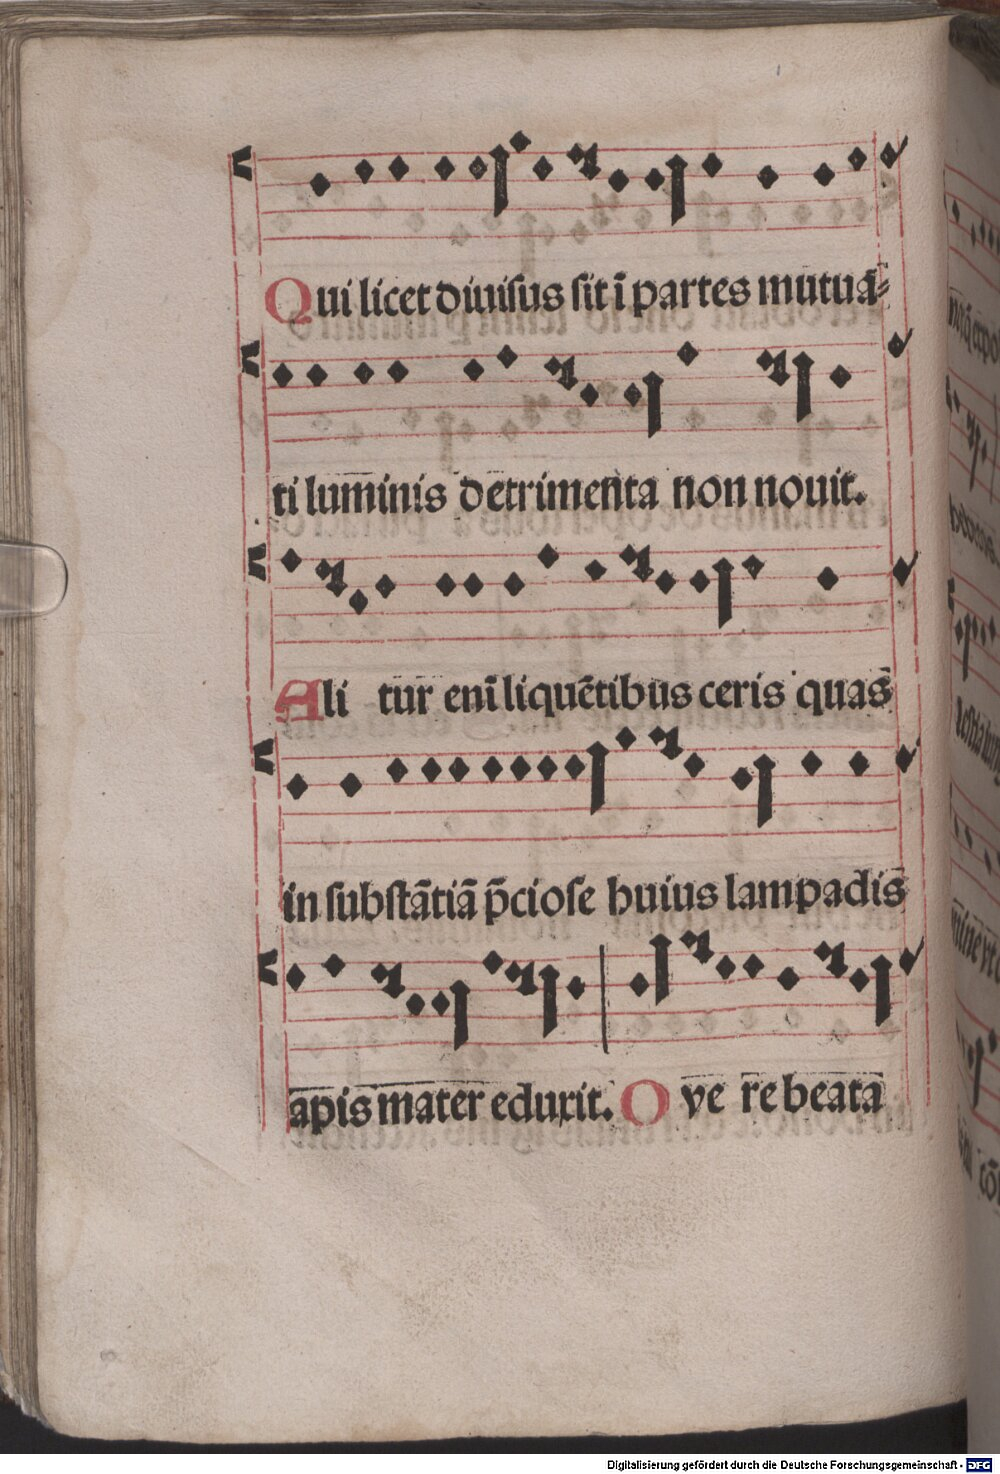 Qui licet diuisus sit ī partes mutuā⸗
ti luminis detrimenta non nouit.
Ali tur enī liquētibus ceris quas
in substātiā p̄ciose huius lampadis
apis mater eduxit. O ve re beata
Digitalisierung gefördert durch die Deutsche Forschungsgemeinschaft - DFG